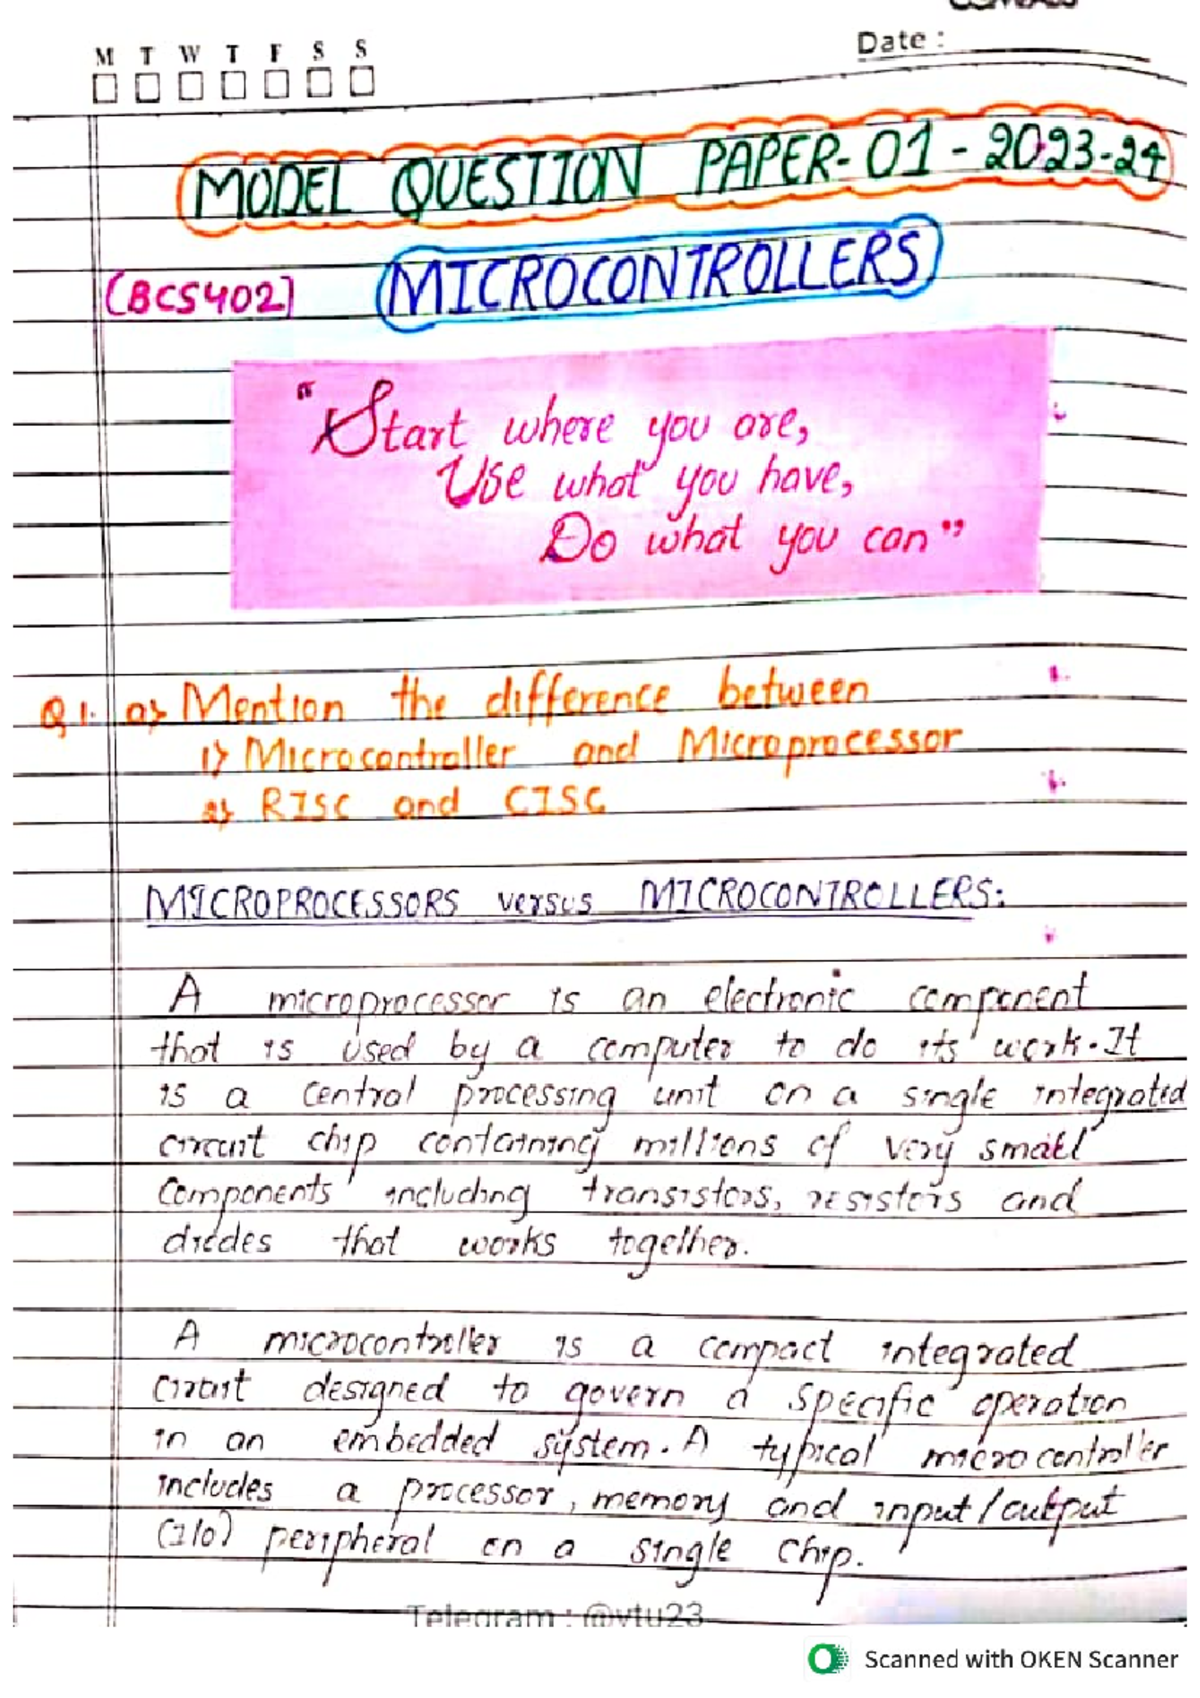 M T W T F S S
Date :
MODEL QUESTION PAPER-01-2023-24
(BCS402) MICROCONTROLLERS
"Start where you are,
Use what you have,
Do what you can"
Q1. a) Mention the difference between
1) Microcontroller and Microprocessor
2) RISC and CISC
MICROPROCESSORS versus MICROCONTROLLERS:
A microprocessor is an electronic component
that is used by a computer to do its work. It
is a central processing unit on a single integrated
circuit chip containing millions of very small
components including transistors, resistors and
diodes that works together.
A microcontroller is a compact integrated
circuit designed to govern a specific operation
in an embedded system. A typical microcontroller
includes a processor, memory and input/output
(I/O) peripheral on a single chip.
Telegram : @vtu23
Scanned with OKEN Scanner